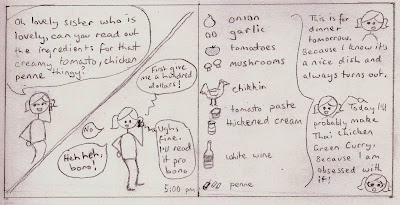 Oh lovely sister who is
lovely, can you read out
the ingredients for that
creamy, tomato, chicken
penne thingy?
First give
me a hundred
dollars!
No
Ughs
fine.
I'll read
it pro
bono
Heh heh,
bono!
5:00 pm
onion
garlic
tomatoes
mushrooms
chikkin
tomato paste
thickened cream
white wine
penne
This is for
dinner
tomorrow.
Because I know it's
a nice dish and
always turns out.
Today I'll
probably make
Thai chicken
Green Curry.
Because I am
obsessed with
it!